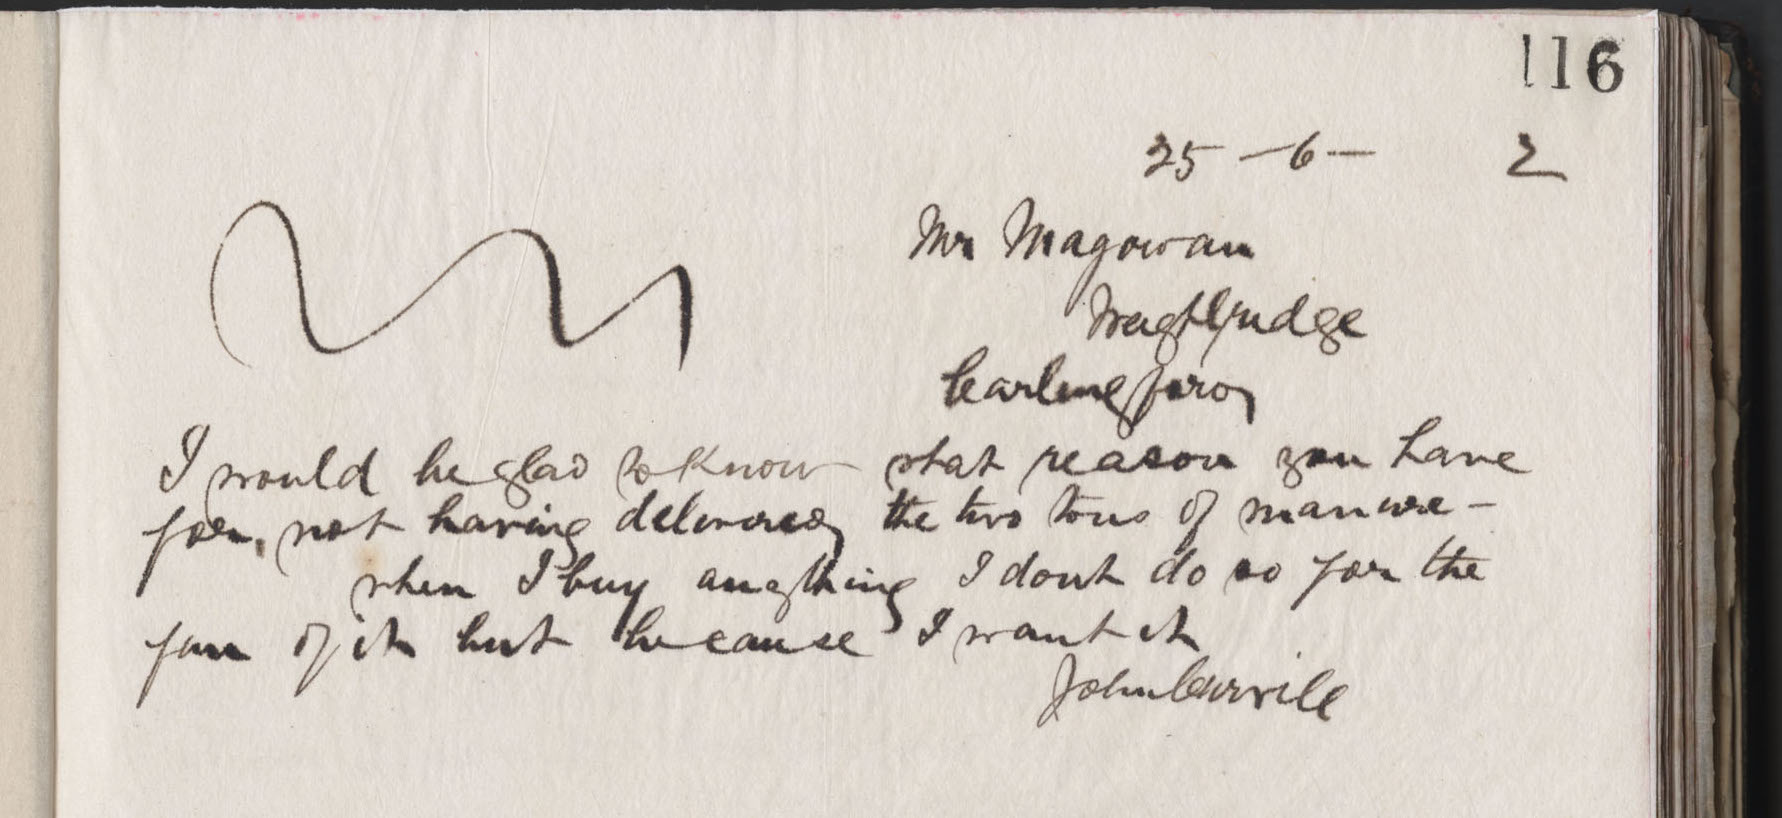 116
25 - 6 - 2
Mr Magowan
Weighbridge
Carlingford
I would be glad to know what reason you have
for, not having delivered the two tons of manure -
when I buy anything I dont do so for the
fun of it but because I want it
John